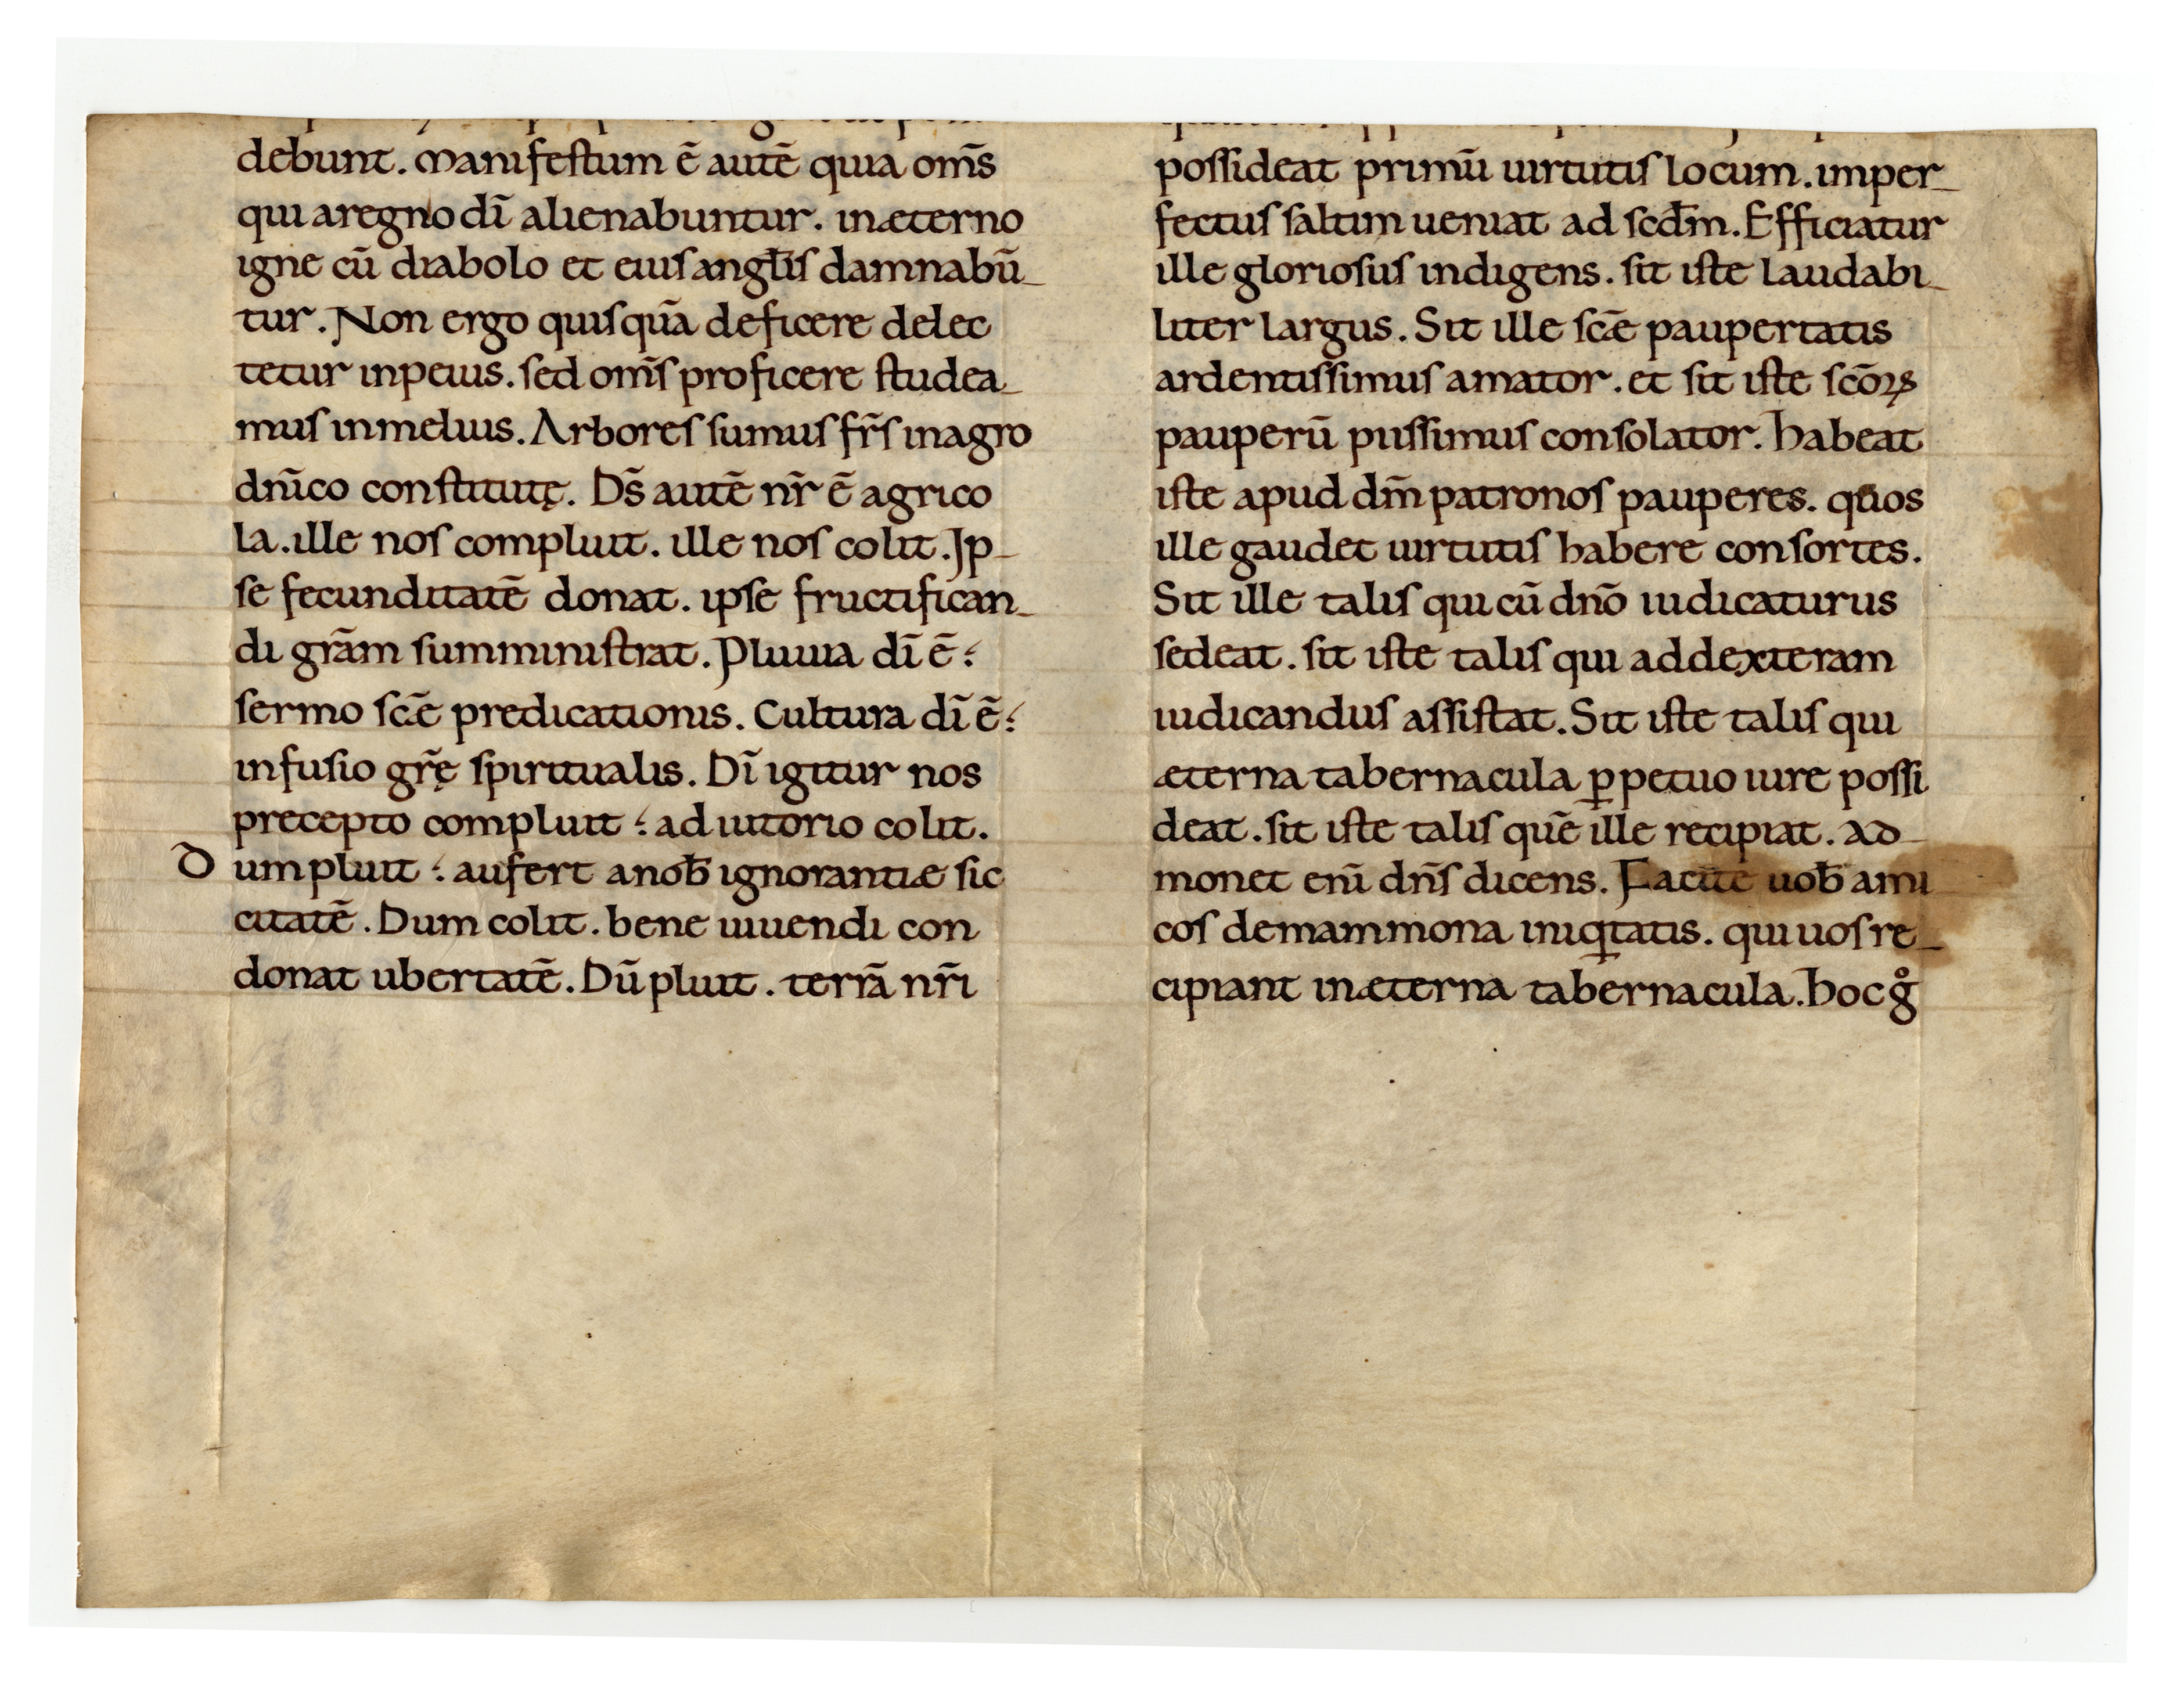 debunt. Manifestum ē autē quia om̄s
qui aregno dī alienabuntur. inæterno
igne cū diabolo et eius angłis damnabū-
tur. Non ergo quisquā deficere delec
tetur inpeius. sed om̄s proficere studea-
mus inmelius. Arbores sumus fr̄s inagro
dn̄ico constitutę. Ds̄ autē nr̄ ē agrico
la. ille nos compluit. ille nos colit. Ip-
se fecunditatē donat. ipse fructifican-
di grām sumministrat. Pluuia dī ē:
sermo scǣ predicationis. Cultura dī ē:
infusio gr̄ę spiritualis. Dī igitur nos
precepto compluit: adiutorio colit.
Dum pluit: aufert anob̄ ignorantiæ sic
citatē. Dum colit. bene uiuendi con
donat ubertatē. Dū pluit. terrā nr̄i
possideat primū uirtutis locum. imper-
fectus saltim ueniat ad scd̄m. Efficiatur
ille gloriosus indigens. sit iste laudabi-
liter largus. Sit ille scǣ paupertatis
ardentissimus amator. et sit iste scōꝝ
pauperū piissimus consolator. habeat
iste apud dm̄ patronos pauperes. quos
ille gaudet uirtutis habere consortes.
Sit ille talis qui cū dn̄o iudicaturus
sedeat. sit iste talis qui addexteram
iudicandus assistat. Sit iste talis qui
æterna tabernacula ꝑpetuo iure possi
deat. sit iste talis quē ille recipiat. Ad-
monet enī dn̄s dicens. Facite uob̄ ami
cos demammona iniq̇tatis. qui uos re-
cipiant inæterna tabernacula. hoc gͦ